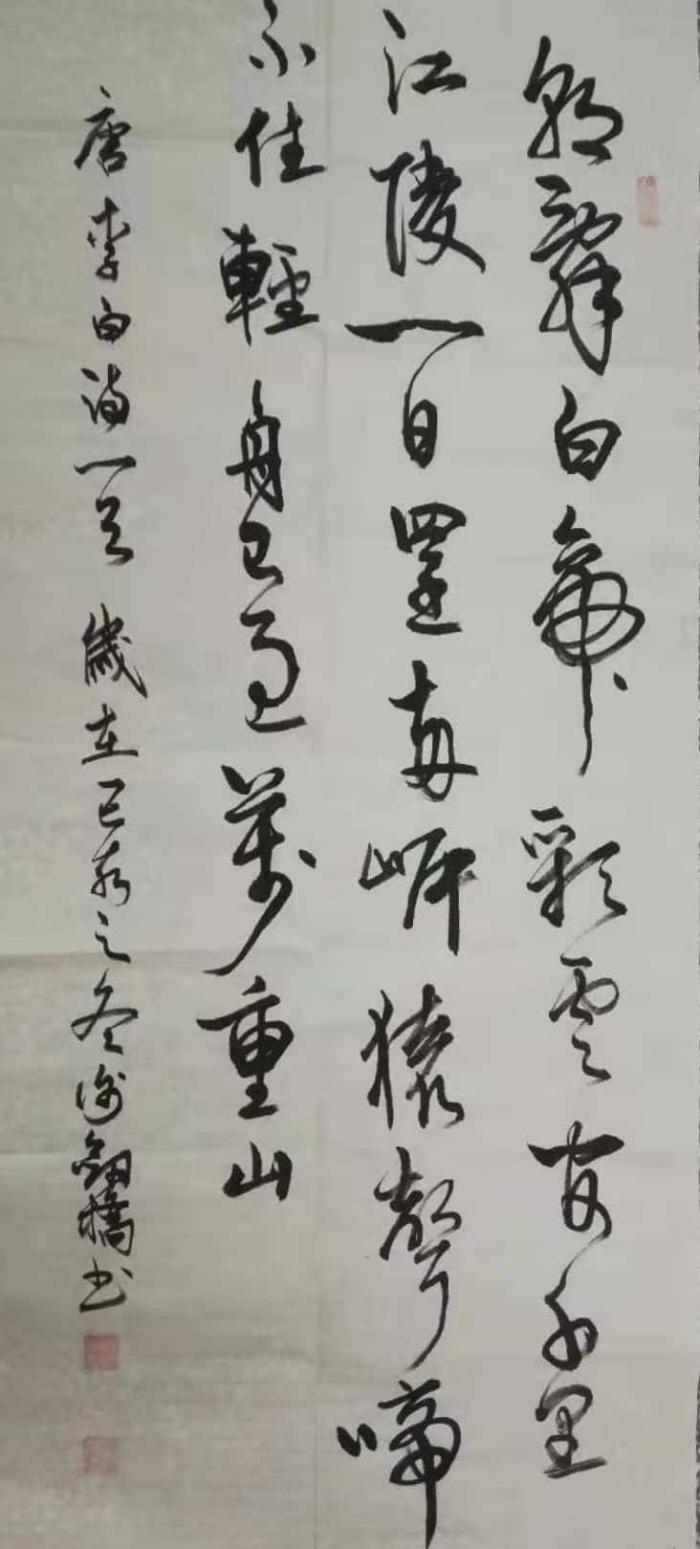 朝辭白帝彩雲間千里
江陵一日還兩岸猿聲啼
不住輕舟已過萬重山
唐李白詩一首 歲在己亥之冬 劍橋书